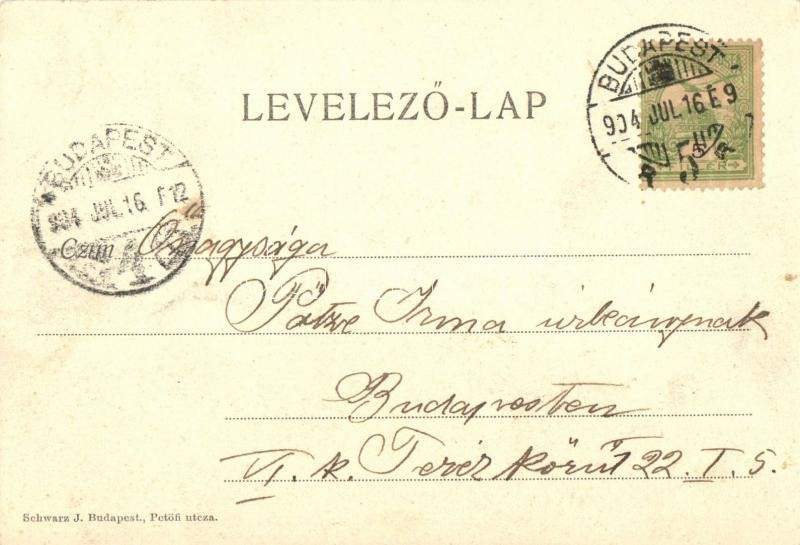 LEVELEZŐ-LAP
BUDAPEST
904 JUL.16 E 9
BUDAPEST
904 JUL.16. F12
Czim
Őnagysága
Irma urleánynak
Budapesten
VI. k. Teréz körút 22. I. 5.
Schwarz J. Budapest., Petőfi utcza.